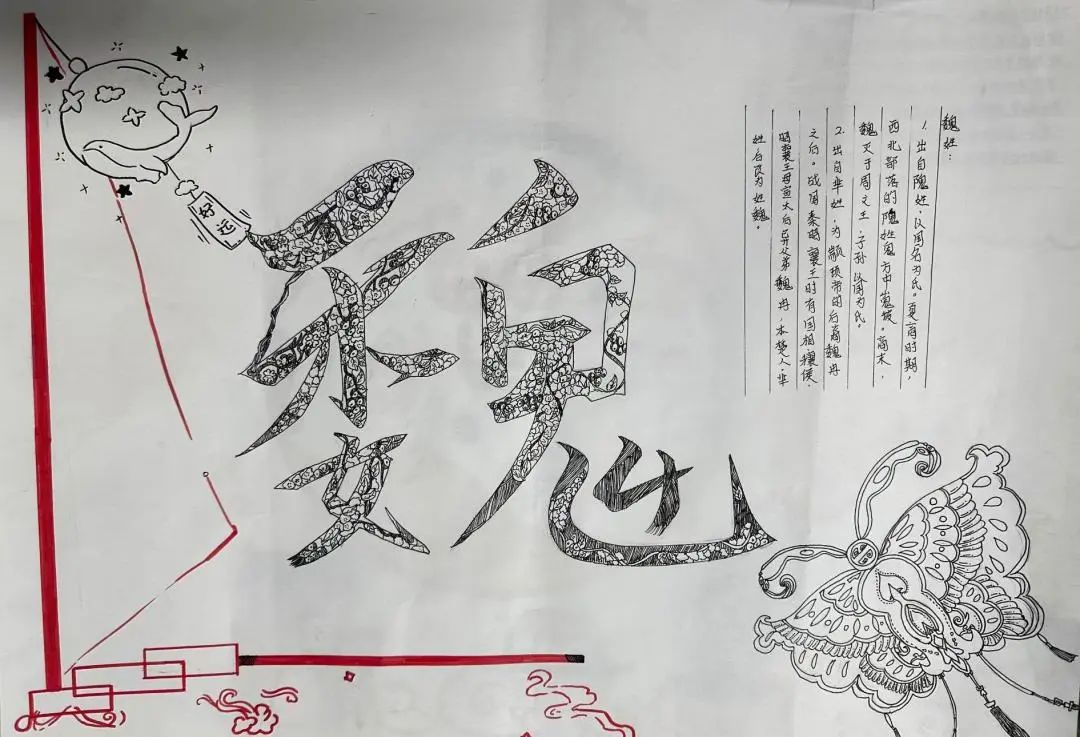 好运
魏
魏姓：
1. 出自隗姓，以国名为氏。夏商时期，
西北部落的隗姓鬼方中嵬。商末，
魏灭于周文王，子孙以国为氏。
2. 出自芈姓，为颛顼帝的后裔魏冉
之后。战国秦昭襄王时有国相穰侯，
昭襄王母宣太后异父弟魏冉，本楚人，芈
姓后改为姓魏。